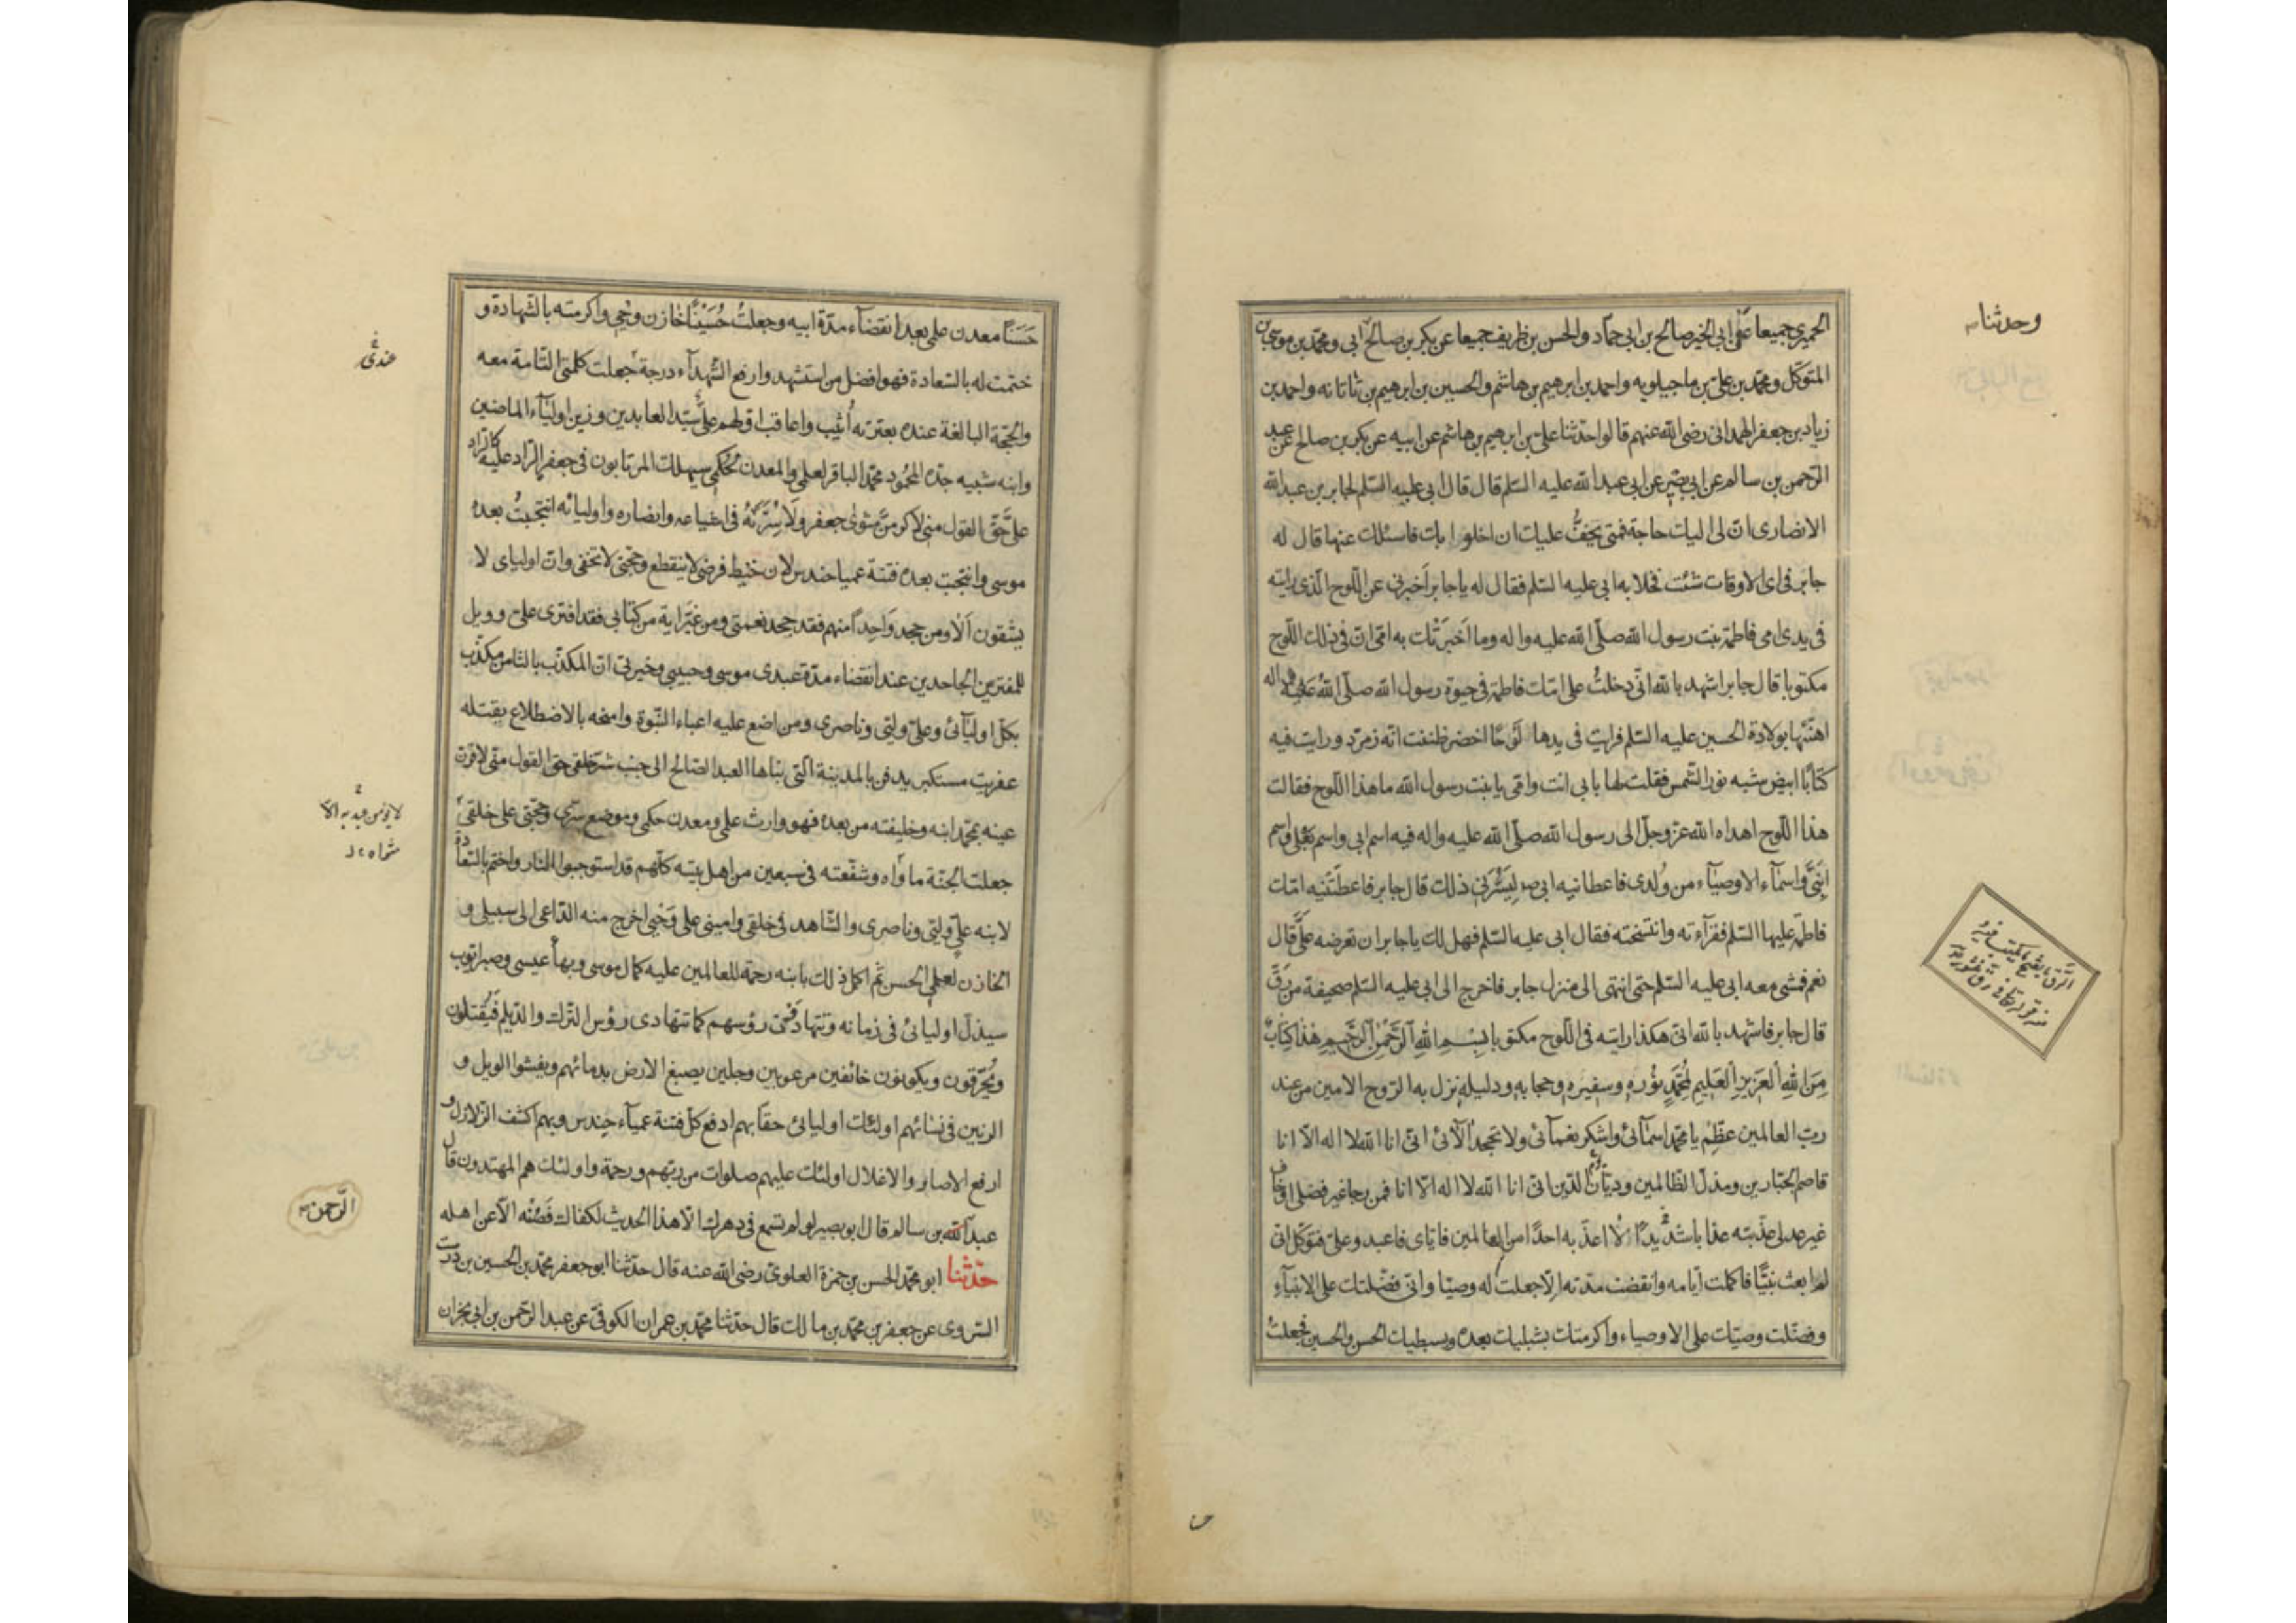 الحميرى جميعا عن ابى الخير صالح بن ابى حمّاد والحسن بن ظريف جميعا عن بكر بن صالح ابى ومحمّد بن موسى بن
وحدثنا
المتوكّل ومحمّد بن علىّ بن ماجيلويه واحمد بن ابرهيم بن هاشم والحسين بن ابرهيم بن ناتانه واحمد بن
زياد بن جعفر الهمدانى رضى الله عنهم قالوا حدّثنا علىّ بن ابرهيم بن هاشم عن ابيه عن بكر بن صالح عن عبد
الرّحمن بن سالم عن ابى بصير عن ابى عبد الله عليه السّلم قال قال ابى عليه السّلم لجابر بن عبد الله
الانصارى انّ لى اليك حاجة فمتى يخفُّ عليك ان اخلو بك فاسئلك عنها قال له
جابر فى اى الاوقات شئت فخلا به ابى عليه السّلم فقال له يا جابر اَخبرنى عن اللّوح الّذى رايته
فى يدى امى فاطمة بنت رسول الله صلّى الله عليه واله وما اَخبَرَتْك به امّى انّ فى ذلك اللّوح
مكتوبا قال جابر اشهد بالله انّى دخلتُ على امّك فاطمة فى حيوة رسول الله صلّى الله عليه واله
اهنّئها بولادة الحسين عليه السّلم فرايت فى يدها لَوْحًا اخضر ظننت انّه زمرّد ورايت فيه
كتابًا ابيض شبه نور الشّمس فقلت لها بابى انت وامّى يا بنت رسول الله ما هذا اللّوح فقالت
هذا اللّوح اهداه الله عزّ وجلّ الى رسول الله صلّى الله عليه واله فيه اسم ابى واسم بَعْلى واسم
اِبْنَىَّ واسمآء الاوصيآء من وُلدى فاعطانيه ابى لِيَسُرَّنى بذلك قال جابر فاعطَتْنيه امّك
فاطمة عليها السّلم فقرآءته وانتسخته فقال ابى عليه السّلم فهل لك يا جابر ان تعرضه علىَّ قال
نعم فمشى معه ابى عليه السّلم حتى انتهى الى منزل جابر فاخرج الى ابى عليه السّلم صحيفة من رَقّ
قال جابر فاشهد بالله انّى هكذا رايته فى اللّوح مكتوبا بِسْمِ اللهِ الرَّحْمٰنِ الرَّحيمِ هٰذا كِتابٌ
مِنَ اللهِ العَزيزِ العَليمِ لِمُحَمَّدٍ نُورِهِ وسفيره وحجابه ودليله نزل به الرّوح الامين من عند
ربّ العالمين عظِّم يا محمّد اسمآئى واشكر نعمآئى ولا تجحد آلآئى انّى انا الله لا اله الّا انا
قاصم الجبّارين ومذلّ الظالمين وديّان الدّين انّى انا الله لا اله الّا انا فمن رجا غير فضلى او خاف
غير عدلى عذّبته عذابا شديدًا لا اعذّبه احدًا من العالمين فايّاى فاعبد وعلىّ فتوكّل انّى
لم ابعث نبيًّا فاكملت ايّامه وانقضت مدّته الّا جعلت له وصيّا وانّى فضّلتك على الانبيآء
وفضّلت وصيّك على الاوصياء واكرمتك بشبليك بعده وبسبطيك الحسن والحسين فجعلتُ
حَسَنًا معدن علمى بعد انقضآء مدّة ابيه وجعلتُ حُسَيْنًا خازن وحْيى واكرمته بالشّهادة و
ختمت له بالسّعادة فهو افضل من استشهد وارفع الشّهدآء درجة جعلت كلمتى التّامة معه
عندى
والحجّة البالغة عنده بعترته اُثيب واعاقب اوّلهم علىّ سيّد العابدين وزين اوليآء الماضين
وابنه شبيه جدّه المحمود محمّد الباقر لعلمى والمعدن لحُكمى سيهلك المرتابون فى جعفر الرّاد عليه كالرّاد
علىَّ حقّ القول منى لاكرمنّ مثوى جعفر ولَاسُرَّنّهُ فى اشياعه وانصاره واوليائه انتجبتُ بعده
موسى وانتجبت بعده فتنة عميا حندس لان خيط فرضى لا ينقطع وحجّتى لا تخفى وانّ اوليائى لا
يشقون اَلا ومن جحد وَاحِدًا منهم فقد جحد نعمتى ومن غيّر اية من كتابى فقد افترى علىّ وويل
للمفترين الجاحدين عند انقضاء مدّة عبدى موسى وحبيبى وخيرتى انّ المكذّب بالثّامن مكذّب
بكلّ اوليآئى وعلىّ وليّى وناصرى ومن اضع عليه اعباء النّبوة وامنحه بالاضطلاع يقتله
عفريت مستكبر يدفن بالمدينة الّتى بناها العبد الصّالح الى جنب شرّ خلقى حقّ القول منّى لاقرّن
عينه بمحمّد ابنه وخليفته من بعده فهو وارث علمى ومعدن حكمى وموضع سرّى وحجّتى على خلقى
لا يؤمن عبد به الّا
جعلت الجنّة ماواه وشفّعته فى سبعين من اهل بيته كلّهم قد استوجبوا النّار واختم بالسّعادة
لابنه علىّ وليّى وناصرى والشّاهد فى خلقى وامينى على وَحْيى اخرج منه الدّاعى الى سبيلى و
الخازن لعلمى الحسن ثمّ اكمل ذلك بابنه رحمة للعالمين عليه كمال موسى وبهآء عيسى وصبر ايّوب
سيذلّ اوليائى فى زمانه وتتهادى رؤسهم كما تتهادى رؤس التّرك والدّيلم فَيُقتلون
ويُحْرَقون ويكونون خائفين مرعوبين وجلين يصبغ الارض بدمائهم ويفشوا الويل و
الرنين فى نسائهم اولئك اوليائى حقّا بهم ادفع كلّ فتنة عميآء حندس وبهم اكشف الزّلازل و
ارفع الاصار والاغلال اولئك عليهم صلوات من ربّهم ورحمة واولئك هم المهتدون قال
عبد الله بن سالم قال ابو بصير لو لم تسمع فى دهرك الّا هذا الحديث لكفاك فَصُنْه الّا عن اهله
الرّحمن
حدّثنا ابو محمّد الحسن بن حمزة العلوىّ رضى الله عنه قال حدّثنا ابو جعفر محمّد بن الحسين بن درست
السّروى عن جعفر بن محمّد بن مالك قال حدّثنا محمّد بن عمران الكوفىّ عن عبد الرّحمن بن ابى نجران